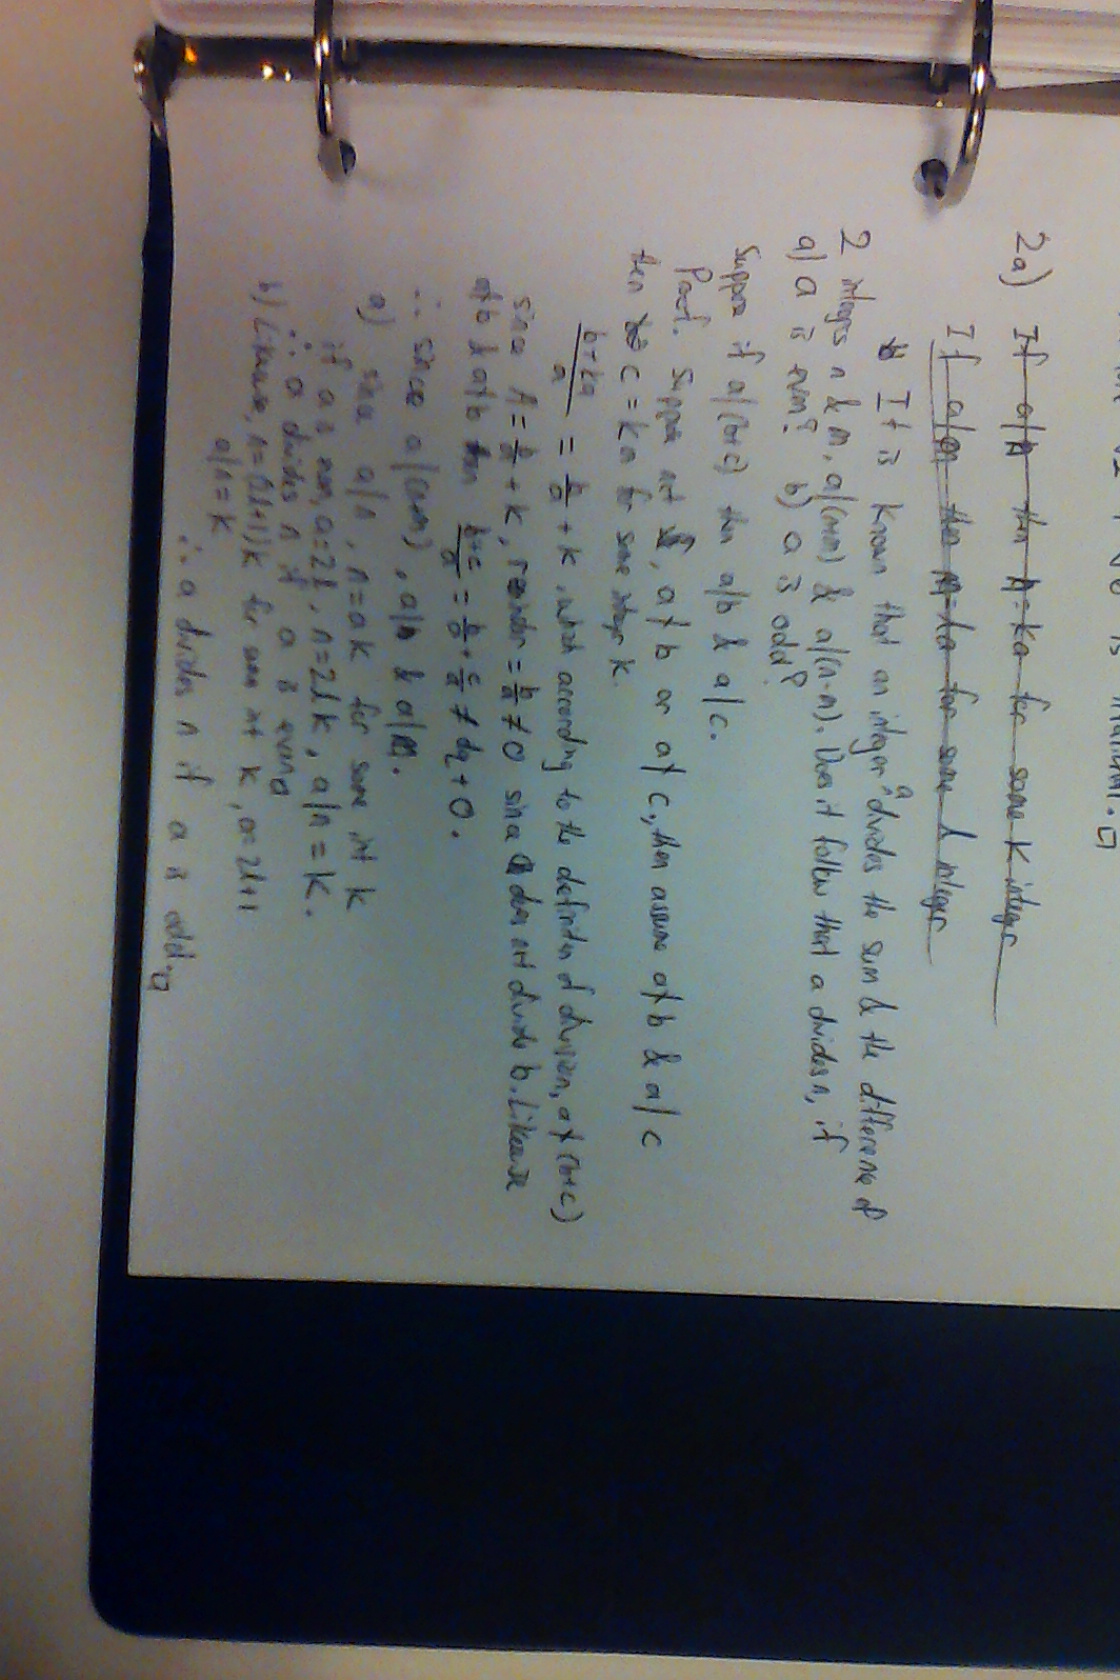 2a) If a|n then n=ka for some k integer
If a|m then m=la for some l integer
It is known that an integer a divides the sum & the difference of
2 integers n & m, a|(n+m) & a|(n-m). Does it follow that a divides n, if
a) a is even? b) a is odd?
Suppose if a|(b+c) then a|b & a|c.
Proof. Suppose not, a∤b or a∤c, then assume a∤b & a|c
then c=ka for some integer k.
b+ka/a = b/a + k, which according to the definition of division, a∤(b+c)
since A = b/a + k, remainder = b/a ≠ 0 since a does not divide b. Likewise
a∤b & a∤b then b+c/a = b/a + c/a ≠ dq + 0.
∴ since a|(n+m), a|n & a|m.
a) since a|n, n=ak for some int k
if a is even, a=2l, n=2lk, a|n=k.
∴ a divides n if a is even
b) Likewise, n=(2l+1)k for some int k, a=2l+1
a|n=k
∴ a divides n if a is odd. □